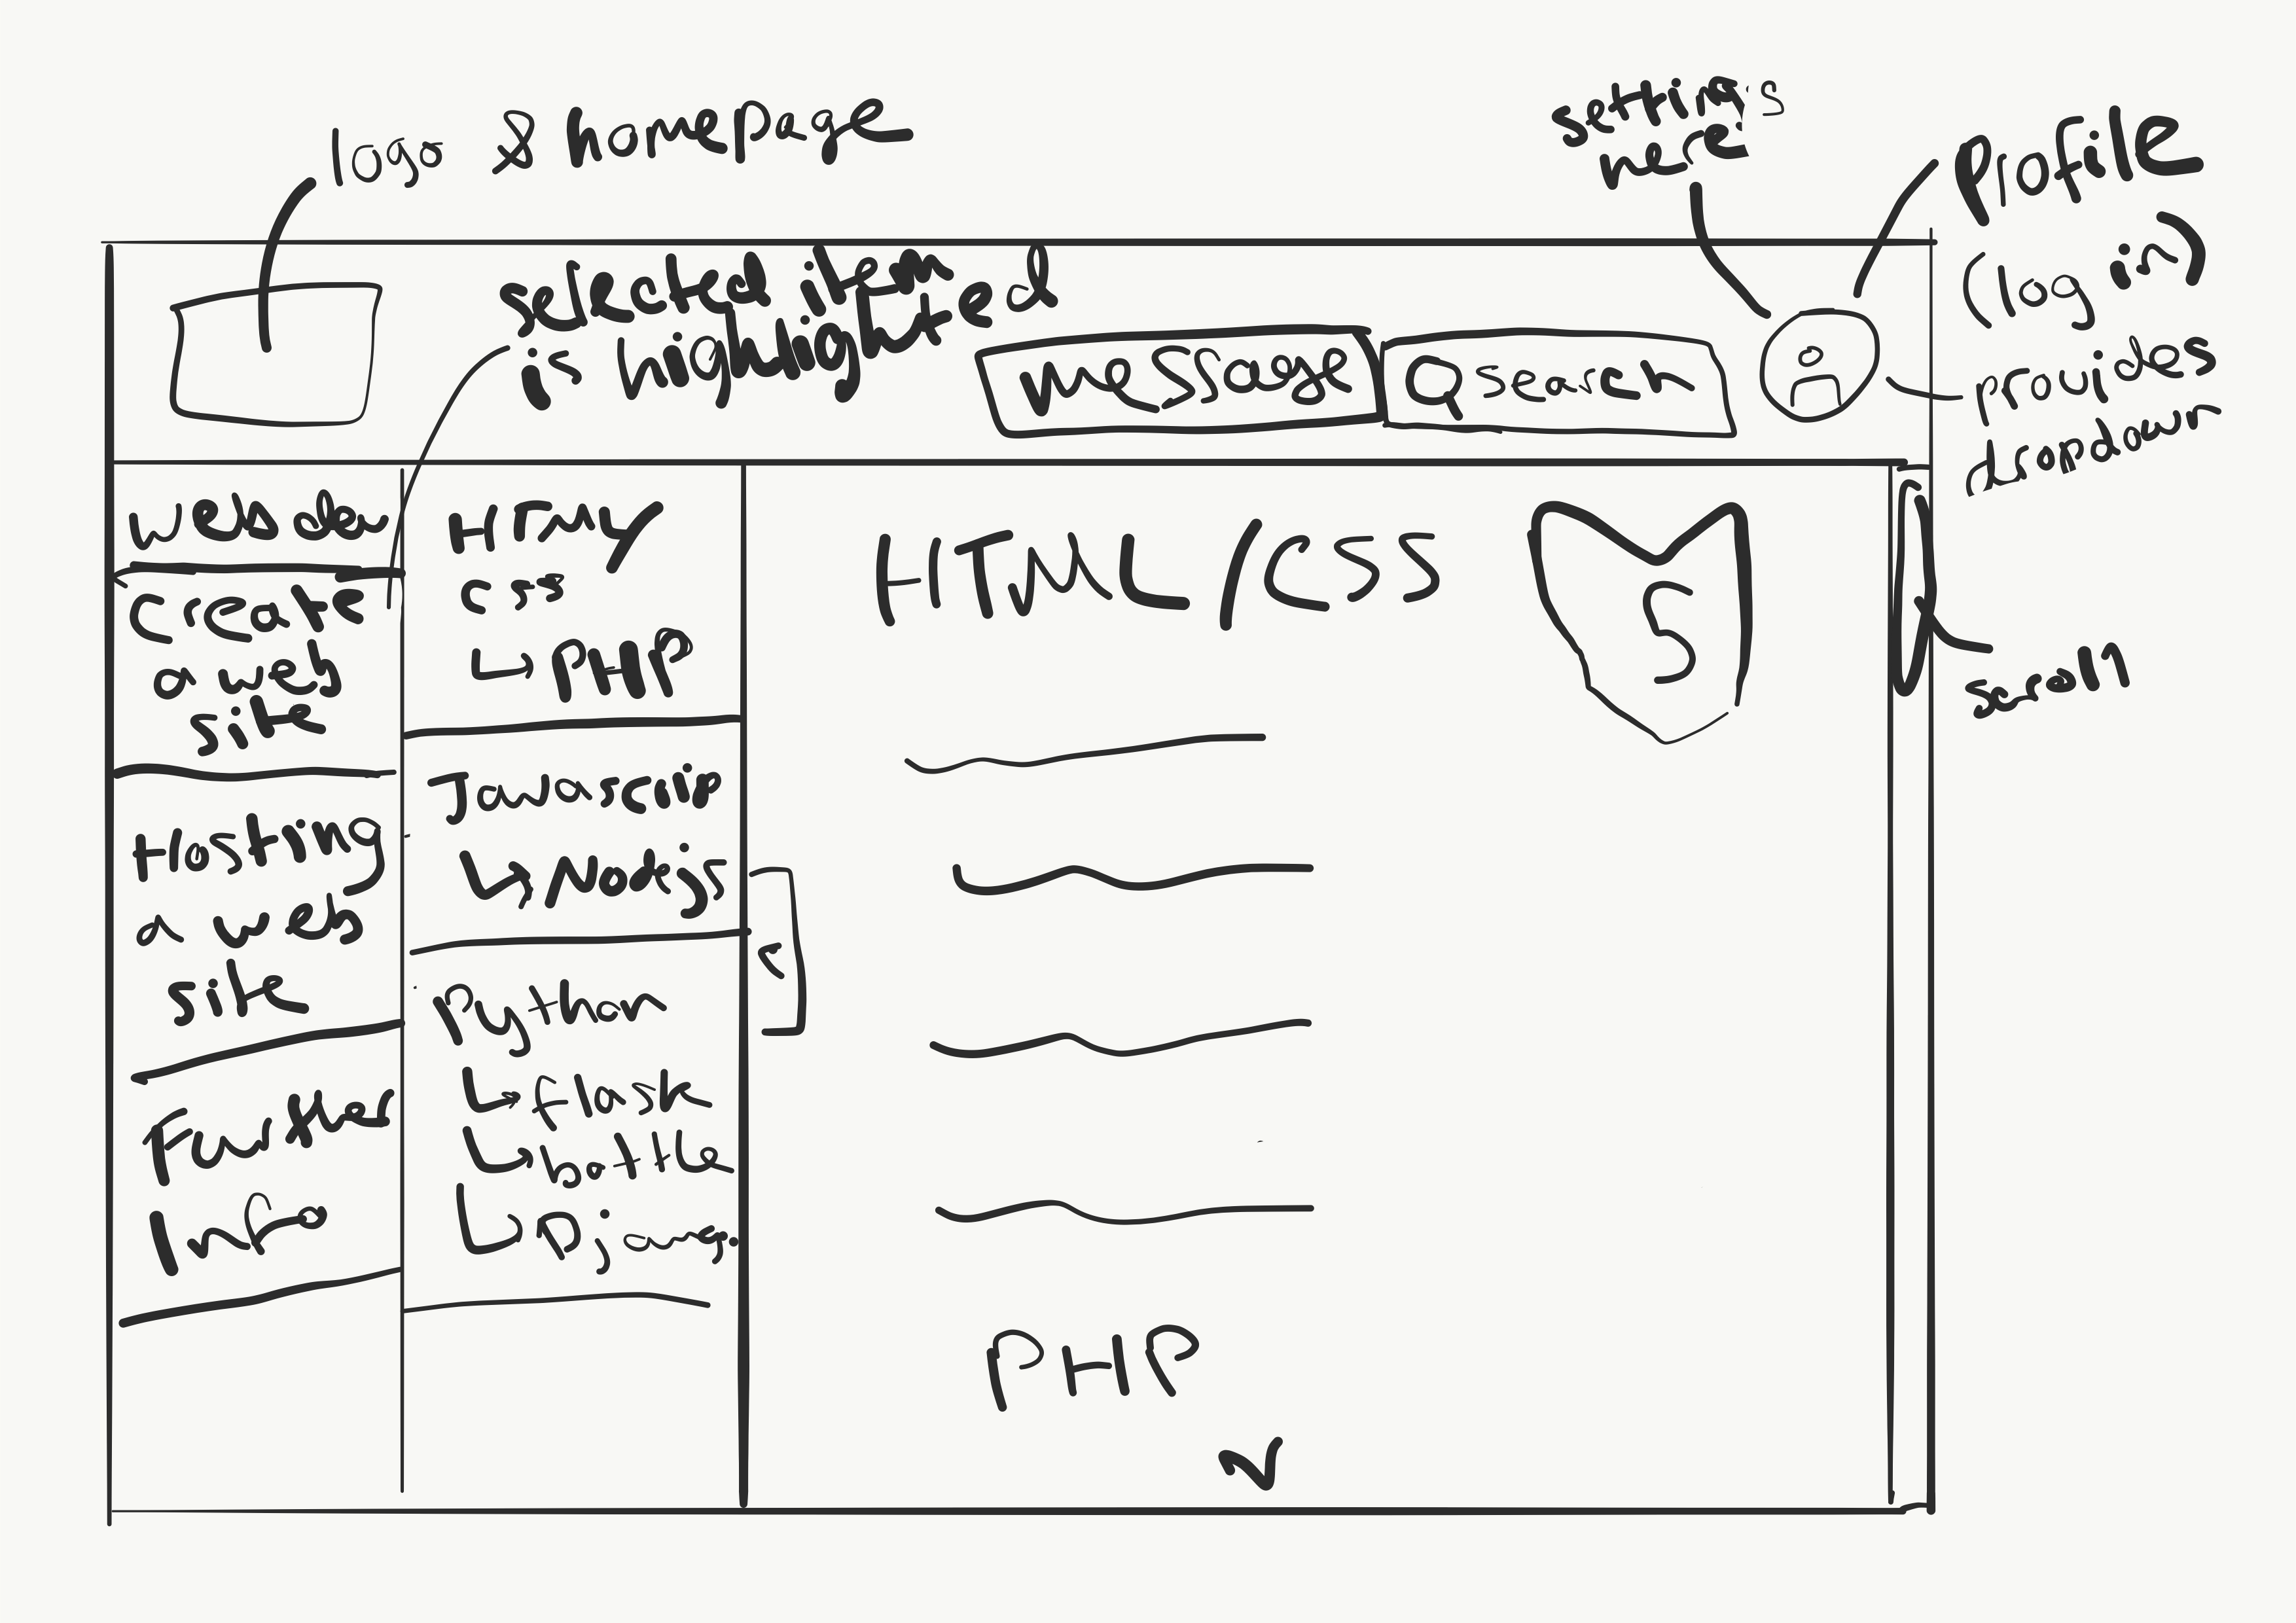 logo & homepage
settings
here
Profile
(log in)
provides
dropdown
selected item
is highlighted
message
search
web dev
Create
a web
site
Hosting
a web
site
Further
Info
HTML/
CSS
↳ PHP
Javascrip
↳ Nodejs
Python
↳ flask
↳ bottle
↳ Django
HTML/CSS
5
scroll
PHP